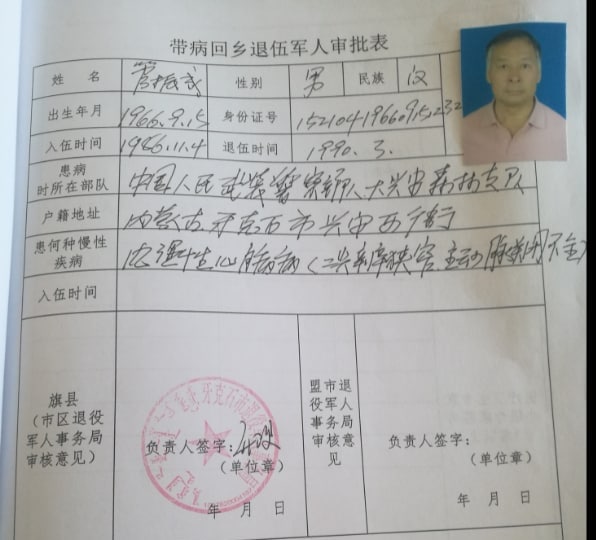 带病回乡退伍军人审批表
姓 名 管振武 性别 男 民族 汉
出生年月 1966.9.15 身份证号
入伍时间 1986.11.4 退伍时间 1990.3.
患病
时所在部队 中国人民武装警察部队大兴安森林支队
户籍地址 内蒙古牙克石市兴安西街
患何种慢性
疾病 风湿性心脏病（二尖瓣狭窄 主动脉瓣闭不全）
入伍时间
旗县
（市区退役
军人事务局
审核意见）
负责人签字：
（单位章）
年 月 日
盟市退
役军人
事务局
审核意
见
负责人签字：
（单位章）
年 月 日